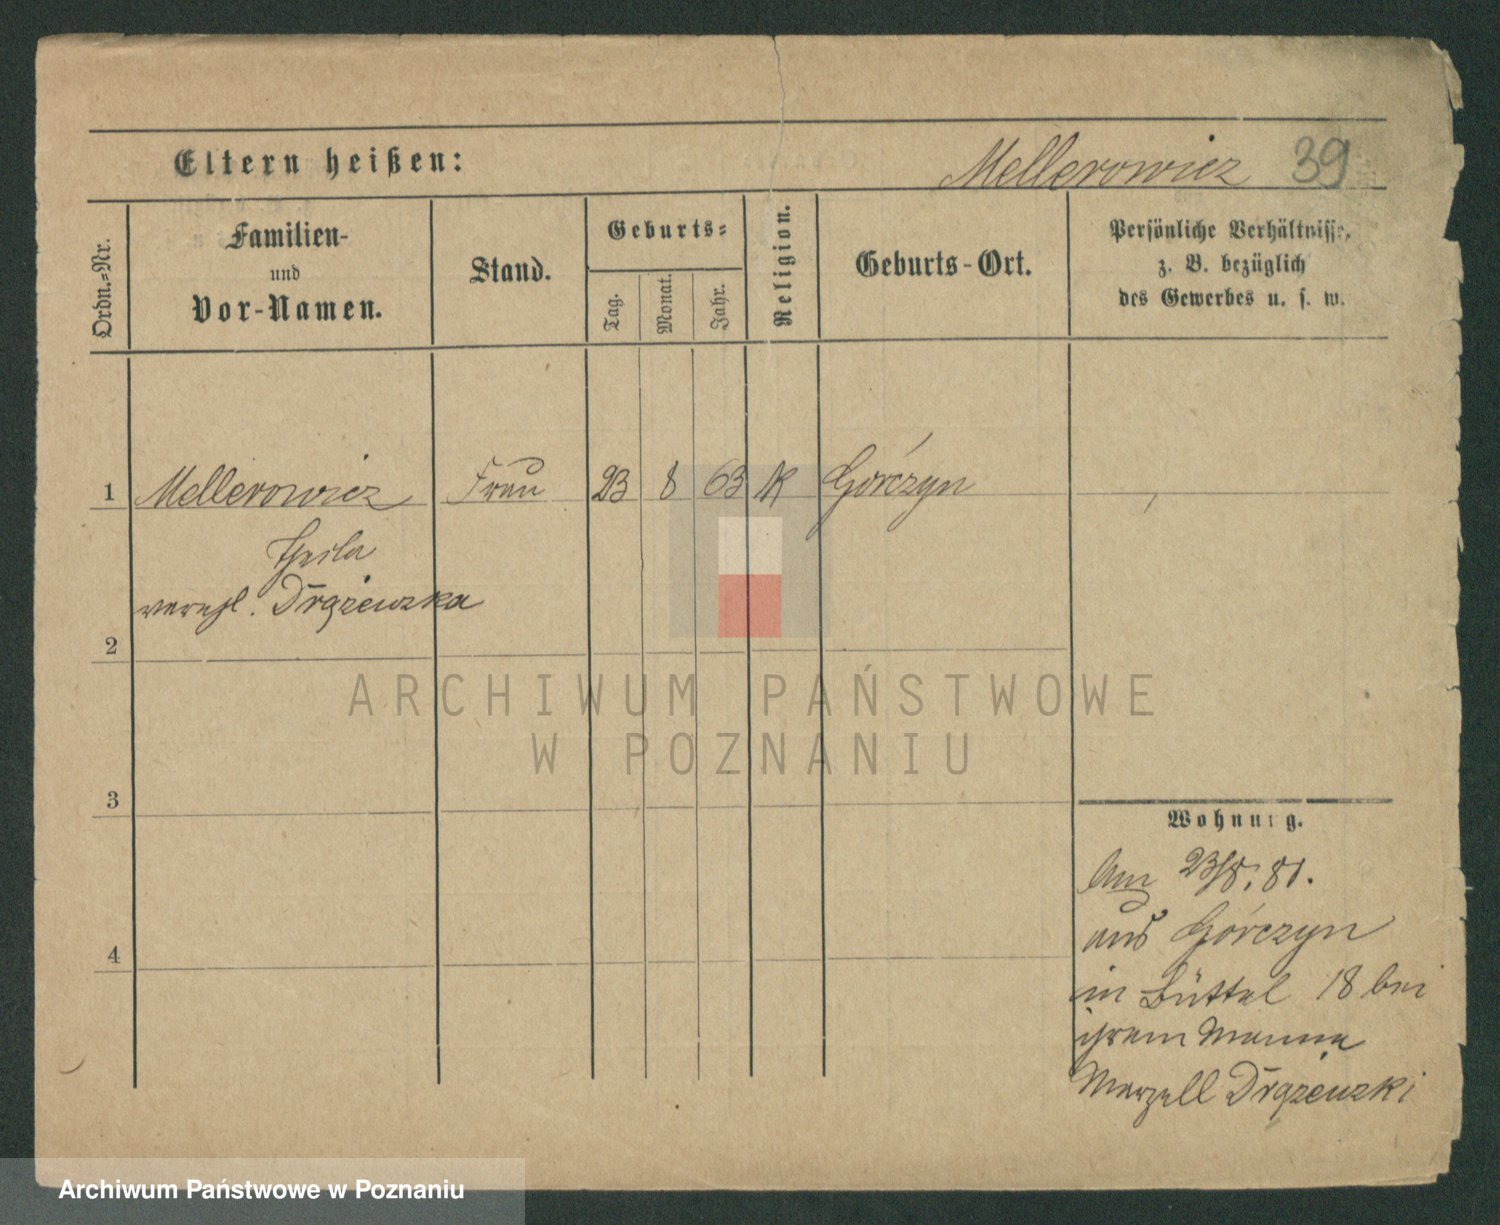 Mellerowicz 39
Eltern heißen:
Ordn.-Nr.
Familien-
und
Vor-Namen.
Stand.
Geburts-
Tag.
Monat.
Jahr.
Religion.
Geburts-Ort.
Persönliche Verhältnisse,
z. B. bezüglich
des Gewerbes u. s. w.
1 Mellerowicz Frau 23 8 63 K Górczyn
verehl. Drążewska
2
3
4
Wohnung.
Am 23/8. 81.
aus Górczyn
in Büttel 18 bei
ihrem Manne
Marzell Drążewski
ARCHIWUM PAŃSTWOWE
W POZNANIU
Archiwum Państwowe w Poznaniu